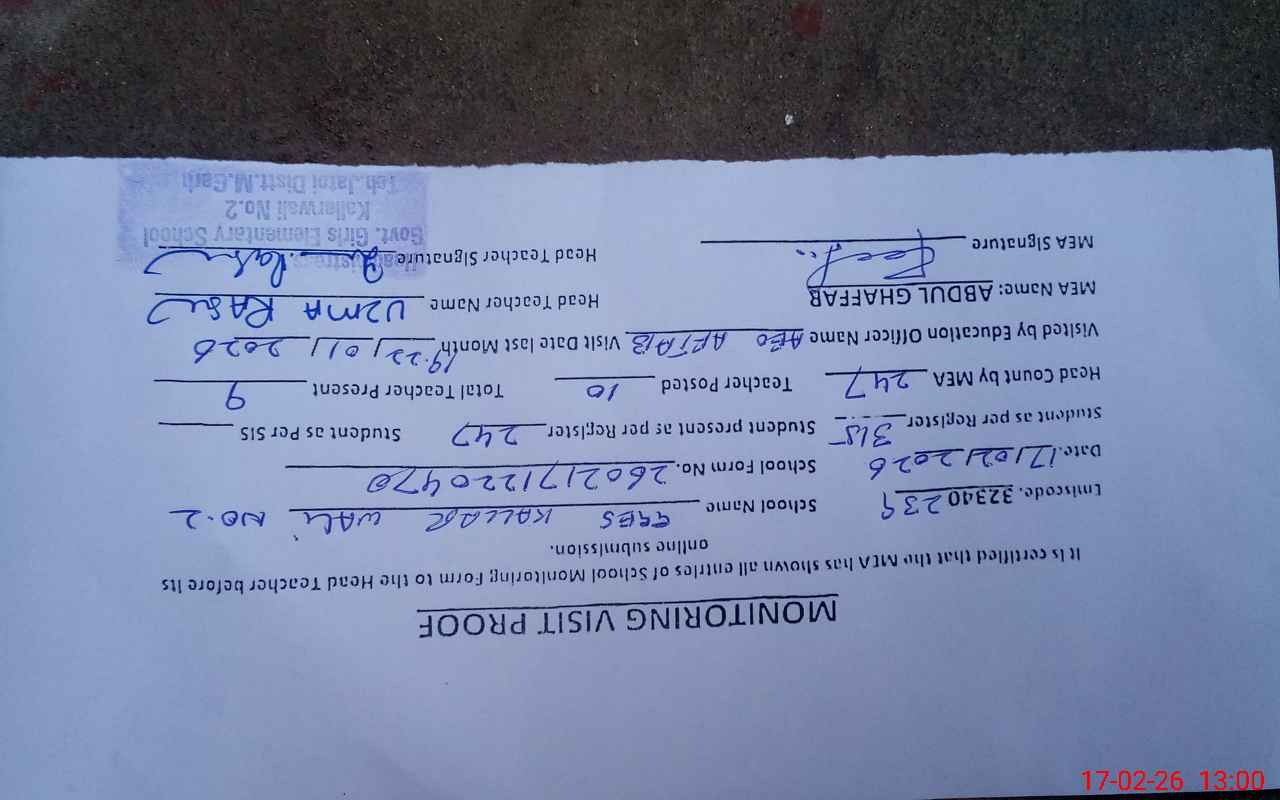 MONITORING VISIT PROOF
It is certified that the MEA has shown all entries of School Monitoring Form to the Head Teacher before its
online submission.
Emiscode. 32340239 School Name GGES KALLAR WALI NO.2
Date. 17/02/2026 School Form No. 2602171220470
Student as per Register 315 Student present as per Register 247 Student as Per SIS
Head Count by MEA 247 Teacher Posted 10 Total Teacher Present 9
Visited by Education Officer Name AEO AFTAB Visit Date last Month 19.22/01/2026
MEA Name: ABDUL GHAFFAR Head Teacher Name UZMA RASUL
MEA Signature Head Teacher Signature
Govt. Girls Elementary School
Kallarwali No.2
Teh.Jatoi Distt.M.Garh
17-02-26 13:00